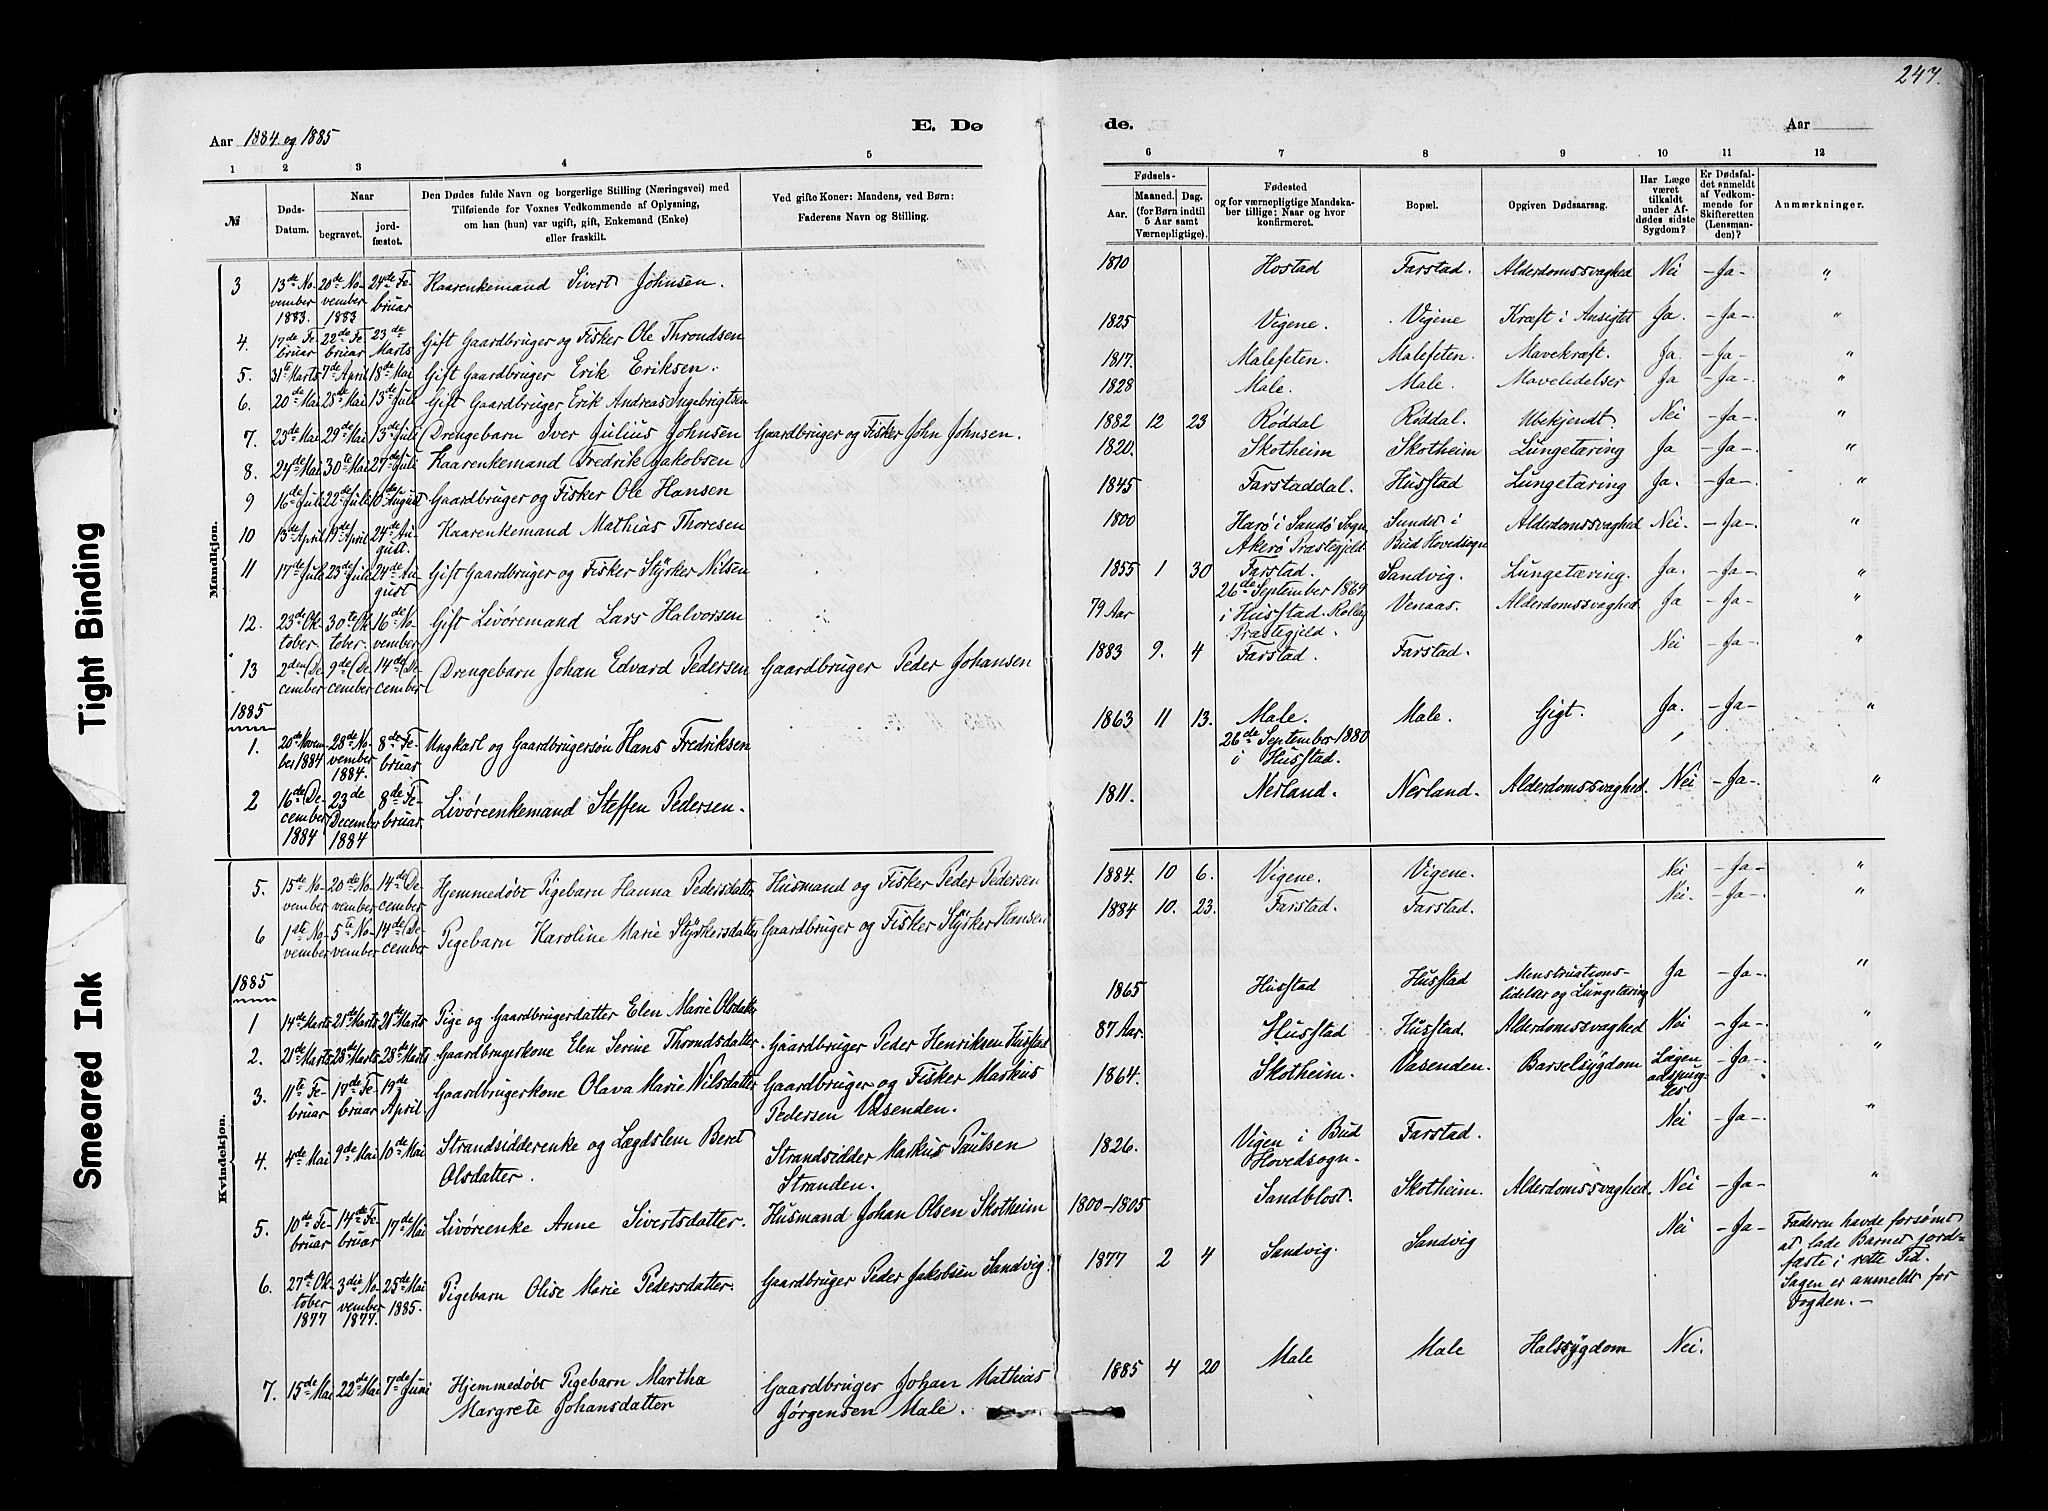 247.
Aar 1884 og 1885
E. Dø
de.
Aar
1 2 3 4 5 6 7 8 9 10 11 12
№
Døds-Datum.
Naar
begravet.
jordfæstet.
Den Dødes fulde Navn og borgerlige Stilling (Næringsvei) med
Tilføiende for Voxnes Vedkommende af Oplysning,
om han (hun) var ugift, gift, Enkemand (Enke)
eller fraskilt.
Ved gifte Koner: Mandens, ved Børn:
Faderens Navn og Stilling.
Fødsels-
Aar.
Maaned. Dag.
(for Børn indtil
5 Aar samt
Værnepligtige).
Fødested
og for værnepligtige Mandskaber tillige: Naar og hvor
konfirmeret.
Bopæl.
Opgiven Dødsaarsag.
Har Læge
været
tilkaldt
under Afdødes sidste
Sygdom?
Er Dødsfaldet anmeldt
af Vedkommende for
Skifteretten
(Lensmanden)?
Anmærkninger.
Mandkjøn.
3 13de November 1883. 20de November 1883 24de Februar Kaarenkemand Sivert Johnsen. 1810 Hostad Farstad. Alderdomssvaghed Nei - Ja - "
4. 17de Februar 22de Februar 23de Marts Gift Gaardbruger og Fisker Ole Throndsen 1825 Vigene. Vigene Kræft i Ansigtet Ja. - Ja - "
5. 31te Marts 7de April 18de Mai Gift Gaardbruger Erik Eriksen. 1817. Malefeten. Malefeten. Mavekræft. Ja. - Ja - "
6. 20de Mai 25de Mai 13de Juli Gift Gaardbruger Erik Andreas Ingebrigtsen 1828 Male. Male. Mavelidelser Ja - Ja -. "
7. 23de Mai 29de Mai 13de Juli Drengebarn Iver Julius Johnsen Gaardbruger og Fisker John Johnsen. 1882 12 23 Røddal Røddal. Ubekjendt. Nei - Ja - "
8. 24de Mai 30te Mai 27de Juli Kaarenkemand Fredrik Jakobsen 1820. Skotheim Skotheim Lungetæring Ja - Ja - "
9 16de Juli 22de Juli 10de August Gaardbruger og Fisker Ole Hansen 1845 Farstaddal. Husstad Lungetæring Ja. - Ja - "
10 13de April 19de April 24de August. Kaarenkemand Mathias Thoresen 1800 Harø i Sandø Sogn Akerø Præstegjeld Sundet i Bud Hovedsogn Alderdomssvaghed Nei. - Ja - "
11 17de Juli 23de Juli 24de August Gift Gaardbruger og Fisker Styrker Nilsen 1855 1 30 Farstad. 26de September 1869 i Husstad Præstegjeld. Sandvig. Lungetæring. Ja. - Ja - "
12. 23de Oktober. 30te Oktober. 16de November. Gift Livøremand Lars Halvorsen 79 Aar Venaas. Alderdomssvaghed Ja - Ja - "
13 2den December 9de December 14de December Drengebarn Johan Edvard Pedersen Gaardbruger Peder Johansen 1883 9. 4 Farstad. Farstad. Nei - Ja - "
1885
1. 20de November 1884 28de November 1884. 8de Februar Ungkarl og Gaardbrugersøn Hans Fredriksen 1863 11 13. Male. 26de September 1880 i Husstad. Male. Gigt. Ja. - Ja - "
2 16de December 1884 23de December 1884 8de Februar Livøreenkemand Steffen Pedersen. 1811. Nerland. Nerland. Alderdomssvaghed. Nei - Ja -. "
Kvindekjøn.
5. 15de November 20de November 14de December Hjemmedøbt Pigebarn Hanna Pedersdatter Husmand og Fisker Peder Pedersen 1884. 10 6. Vigene. Vigene. Nei - Ja - "
6 1ste November 5te November 14de December Pigebarn Karoline Marie Styrkersdatter Gaardbruger og Fisker Styrker Hansen 1884 10. 23. Farstad. Farstad. Nei. - Ja -. "
1885
1 14de Marts 21de Marts 21de Marts Pige og Gaardbrugerdatter Elen Marie Olsdatter 1865 Husstad Husstad Menstruationslidelser og Lungetæring Ja - Ja -. "
2. 21de Marts 28de Marts 28de Marts Gaardbrugerkone Elen Serine Throndsdatter. Gaardbruger Peder Henriksen Husstad 87 Aar. Husstad Husstad. Alderdomssvaghed Nei - Ja -. "
3. 11te Februar 17de Februar 19de April Gaardbrugerkone Olava Marie Nilsdatter Gaardbruger og Fisker Markus Pedersen Vasenden. 1864. Skotheim. Vasenden. Barselsygdom Lægen adspurgtes - Ja -. "
4. 4de Mai 9de Mai 10de Mai Strandsidderenke og Lægdslem Beret Olsdatter. Strandsidder Markus Paulsen Stranden. 1826. Vigen i Bud Hovedsogn. Farstad. Nei - Ja -. "
5. 10de Februar 14de Februar 17de Mai Livøreenke Anne Sivertsdatter. Husmand Johan Olsen Skotheim 1800-1805 Sandblost. Skotheim. Alderdomssvaghed. Nei - Ja - "
6. 27de Oktober 1877 3die November 1877. 25de Mai 1885. Pigebarn Olise Marie Pedersdatter. Gaardbruger Peder Jakobsen Sandvig. 1877 2 4 Sandvig. Sandvig Nei - Ja - Faderen havde forsømt at lade Barnet jordfæste i rette Tid. Sagen er anmeldt for Fogden. -
7. 15de Mai 22de Mai 7de Juni Hjemmedøbt Pigebarn Martha Margrete Johansdatter Gaardbruger Johan Mathias Jørgensen Male. 1885 4 20 Male Male Halssygdom Nei.
Tight Binding
Smeared Ink